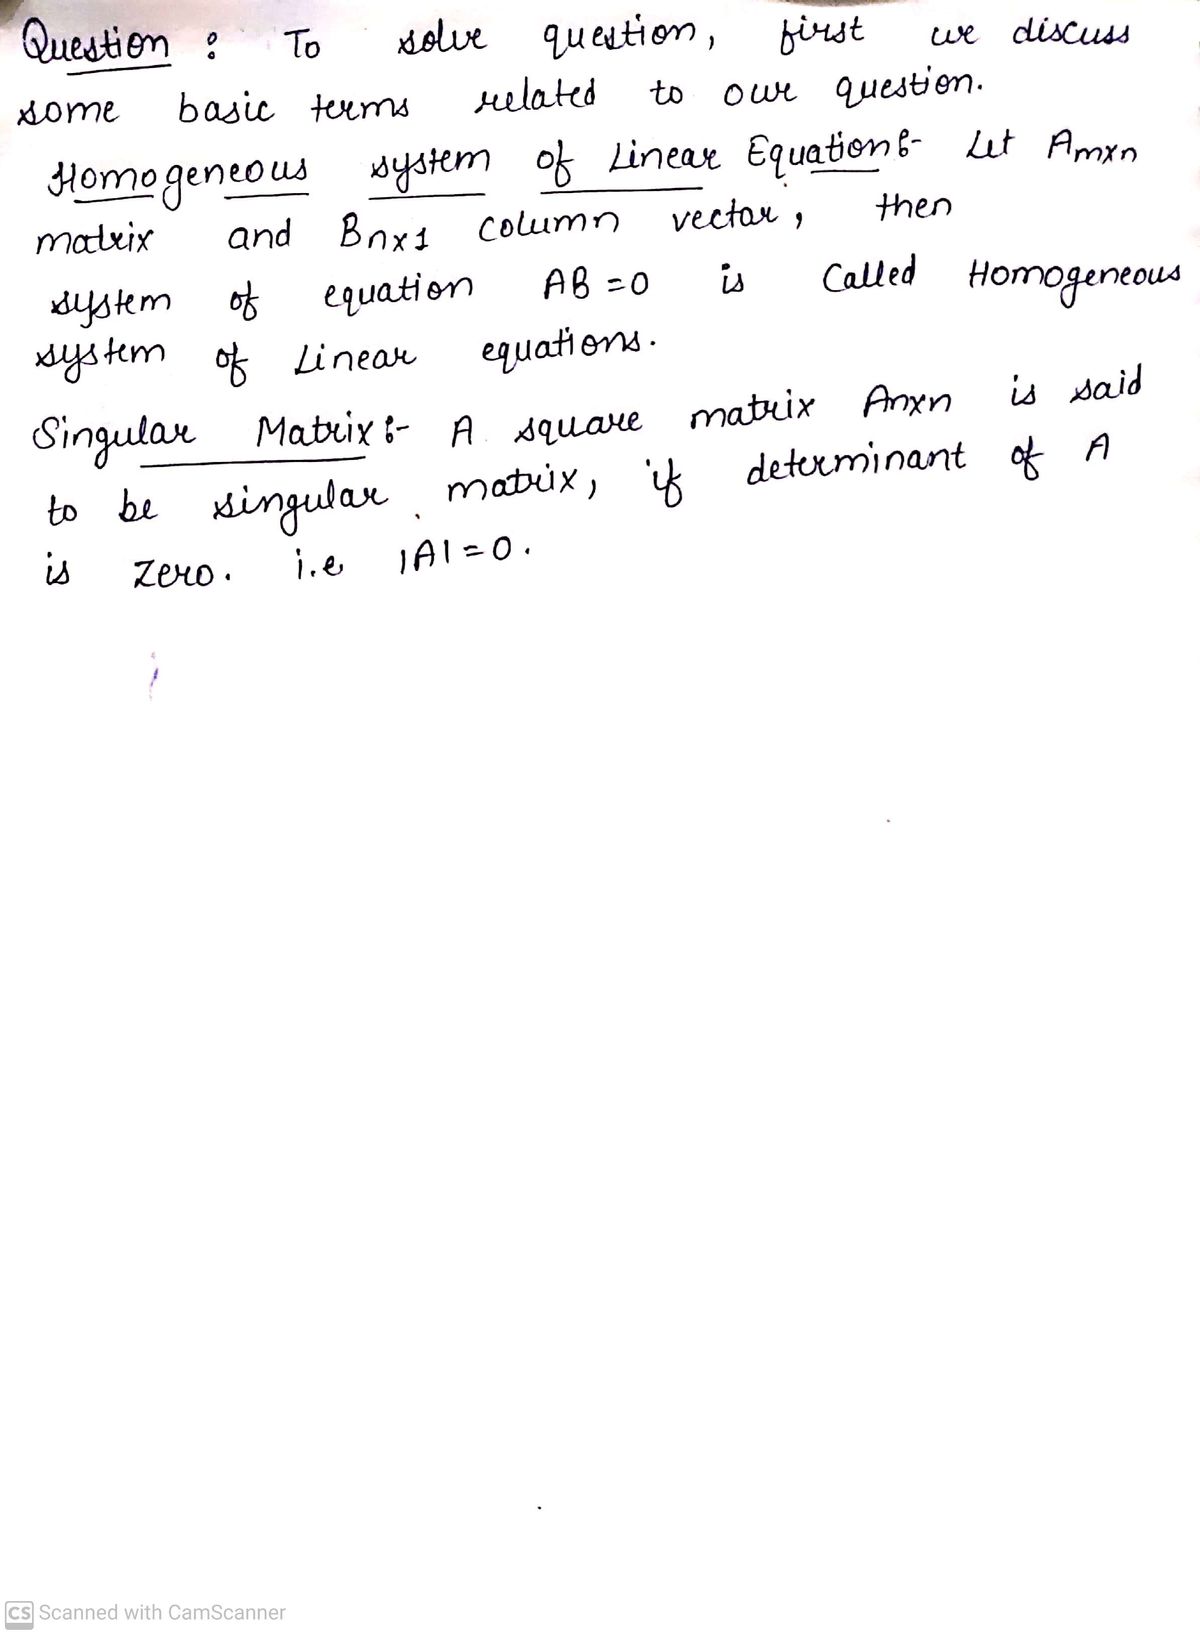 Question : To solve question, first we discuss
some basic terms related to our question.
Homogeneous system of Linear Equation:- Let Amxn
matrix and Bnx1 column vector, then
system of equation AB = 0 is Called Homogeneous
system of Linear equations.
Singular Matrix:- A square matrix Anxn is said
to be singular matrix, if determinant of A
is Zero. i.e |A| = 0.
CS Scanned with CamScanner